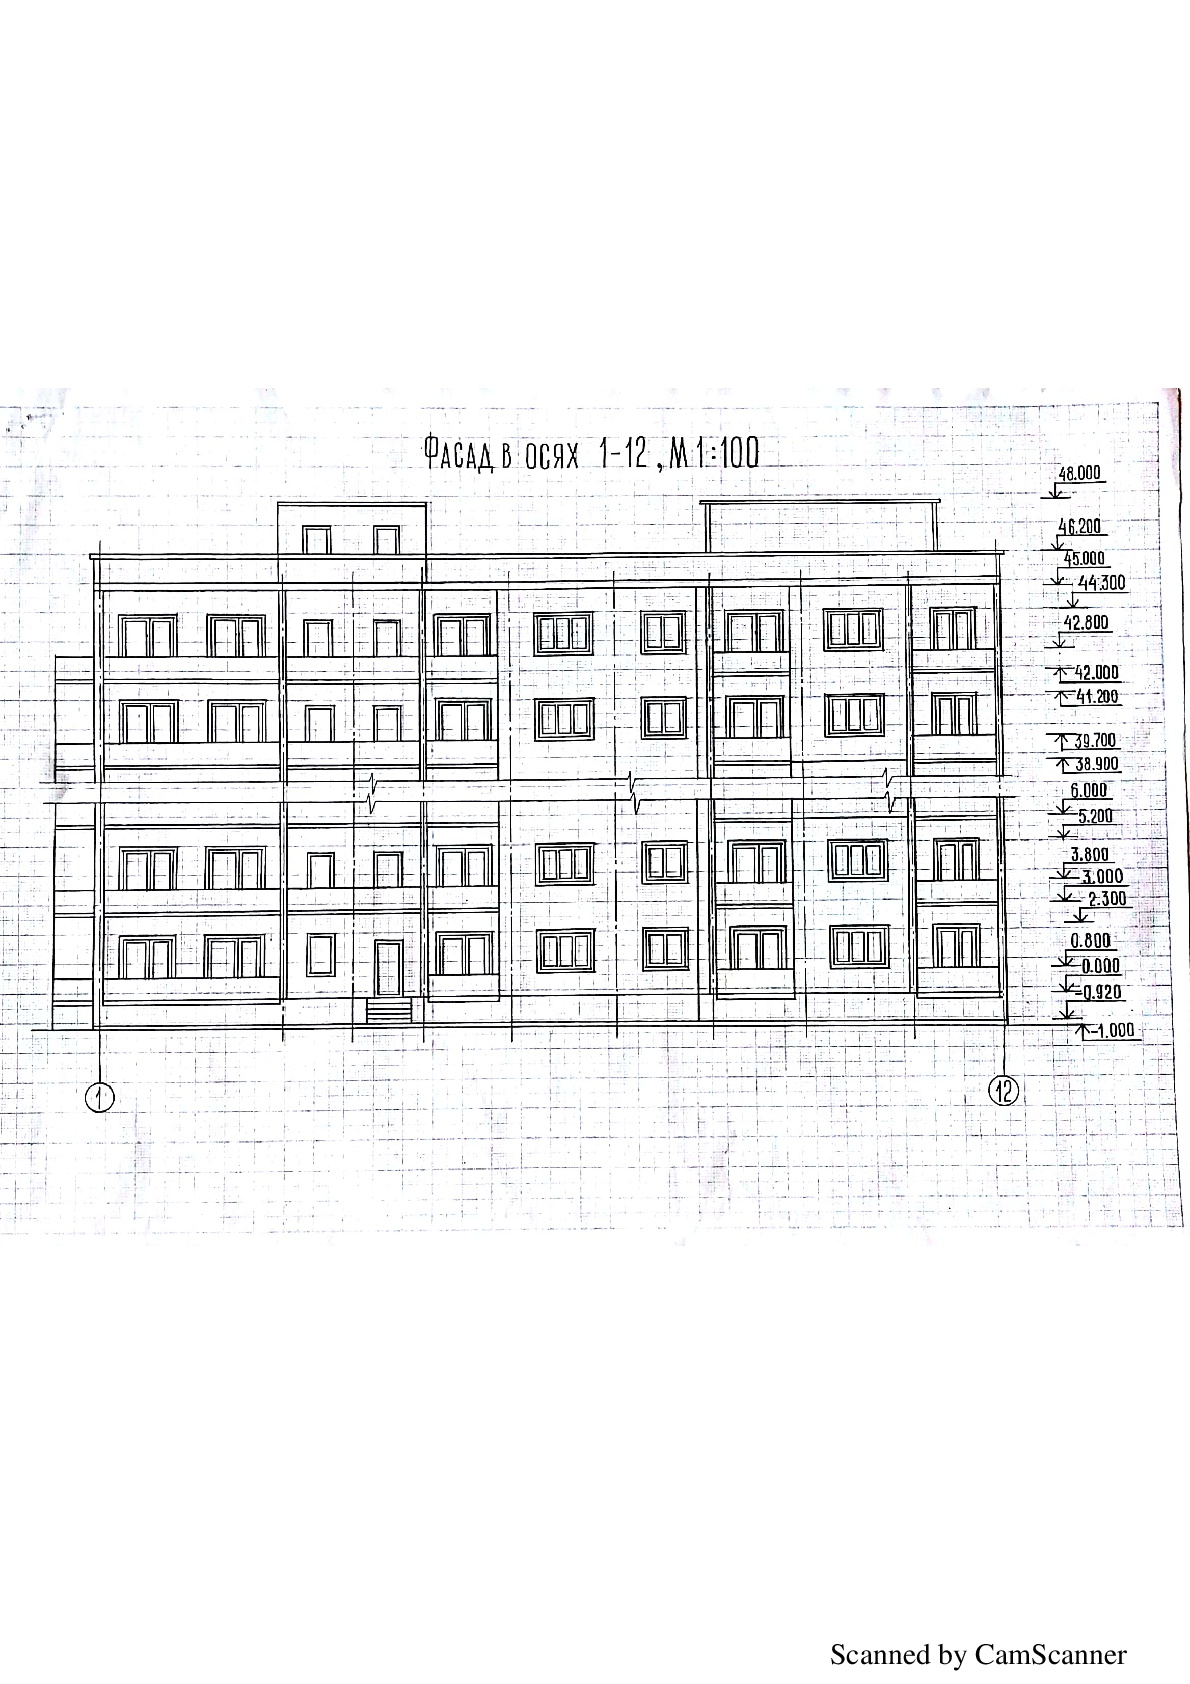 Фасад в осях 1-12, М 1:100
48.000
46.200
45.000
44.300
42.800
42.000
41.200
39.700
38.900
6.000
5.200
3.800
3.000
2.300
0.800
0.000
-0.920
-1.000
1
12
Scanned by CamScanner